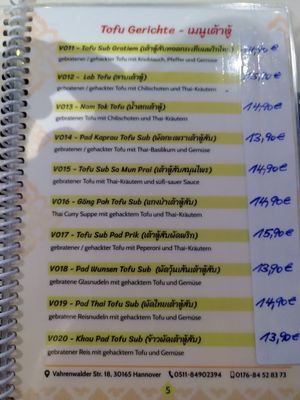 Tofu Gerichte - เมนูเต้าหู้
V011 - Tofu Sub Gratiem (เต้าหู้ทอดกระเทียมพริกไทย)
gebratener / gehackter Tofu mit Knoblauch, Pfeffer und Gemüse
V012 - Lab Tofu (ลาบเต้าหู้)
gehackter Tofu mit Chilischoten und Thai-Kräutern
V013 - Nam Tok Tofu (น้ำตกเต้าหู้) 14,90€
gebratener Tofu mit Chilischoten und Thai-Kräutern
V014 - Pad Kaprau Tofu Sub (ผัดกะเพราเต้าหู้สับ) 13,90€
gebratener / gehackter Tofu mit Thai-Basilikum und Gemüse
V015 - Tofu Sub Sa Mun Prai (เต้าหู้สับสมุนไพร) 14,90€
gebratener Tofu mit Thai-Kräutern und süß-sauer Sauce
V016 - Gäng Pah Tofu Sub (แกงป่าเต้าหู้สับ) 14,90€
Thai Curry Suppe mit gehacktem Tofu und Thai-Kräutern
V017 - Tofu Sub Pad Prik (เต้าหู้สับผัดพริก) 15,90€
gebratener / gehackter Tofu mit Peperoni und Thai-Kräutern
V018 - Pad Wunsen Tofu Sub (ผัดวุ้นเส้นเต้าหู้สับ) 13,90€
gebratene Glasnudeln mit gehacktem Tofu und Gemüse
V019 - Pad Thai Tofu Sub (ผัดไทยเต้าหู้สับ) 14,90€
gebratene Reisnudeln mit gehacktem Tofu und Gemüse
V020 - Khau Pad Tofu Sub (ข้าวผัดเต้าหู้สับ) 13,90€
gebratener Reis mit gehacktem Tofu und Gemüse
Vahrenwalder Str. 18, 30165 Hannover 0511-84902394 0176-84 52 83 73
5